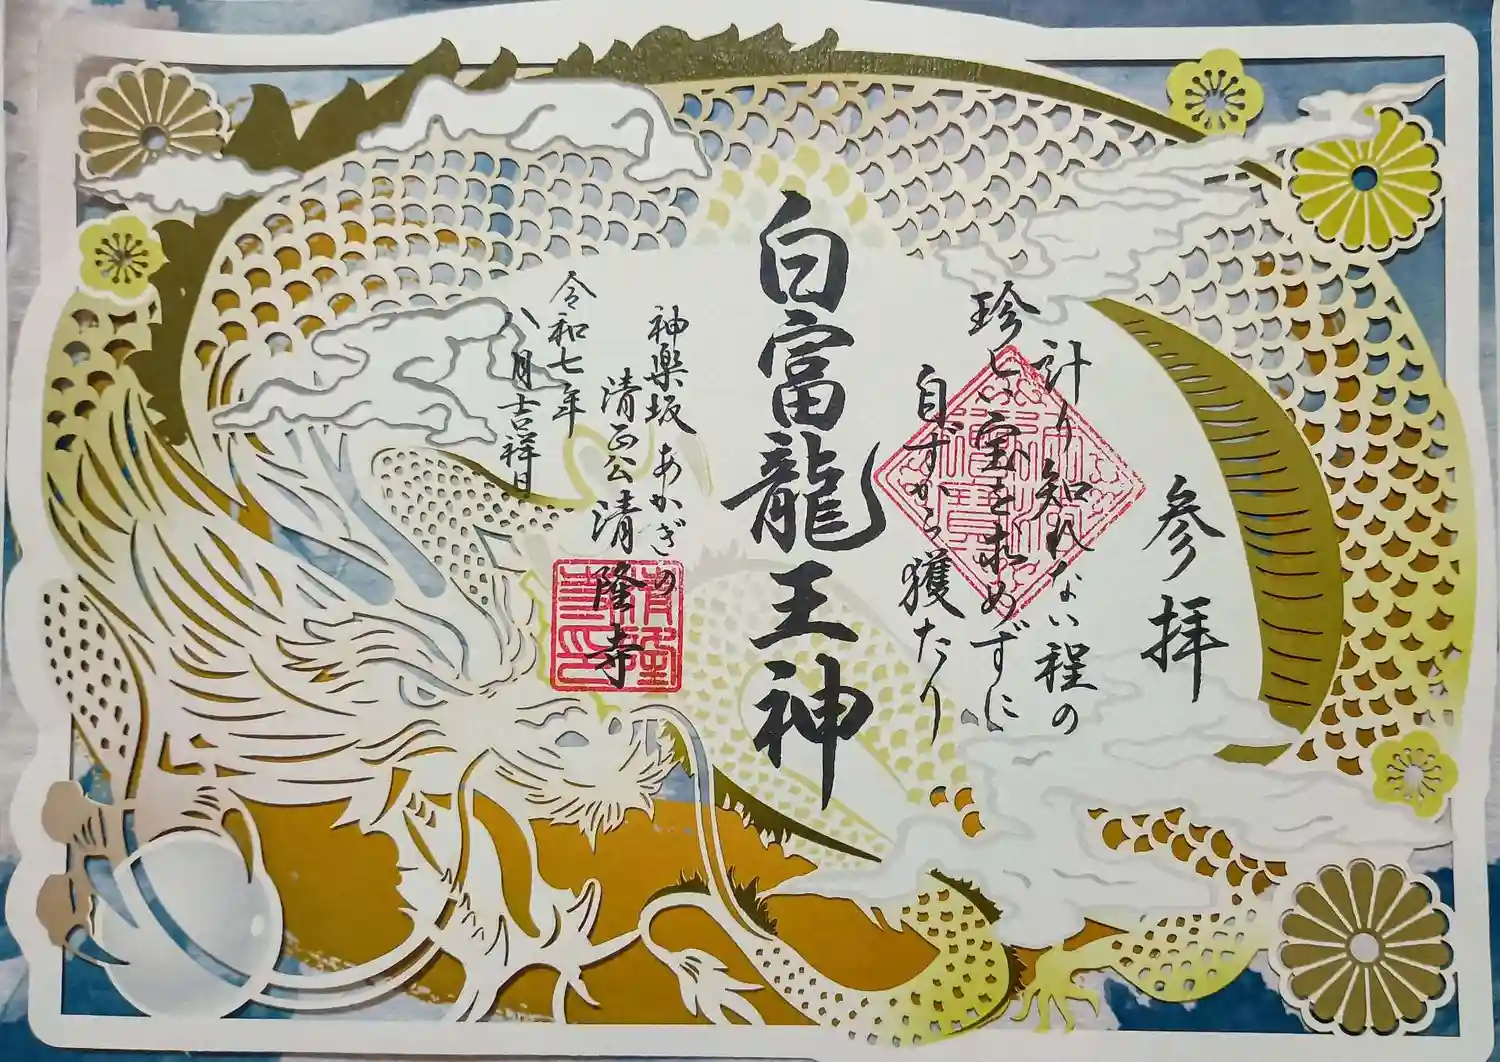 参拝
計り知れない程の
珍しい宝を求めずに
自ずから獲たり
白富龍王神
神楽坂あかぎの
清正公清隆寺
令和七年
八月吉祥日